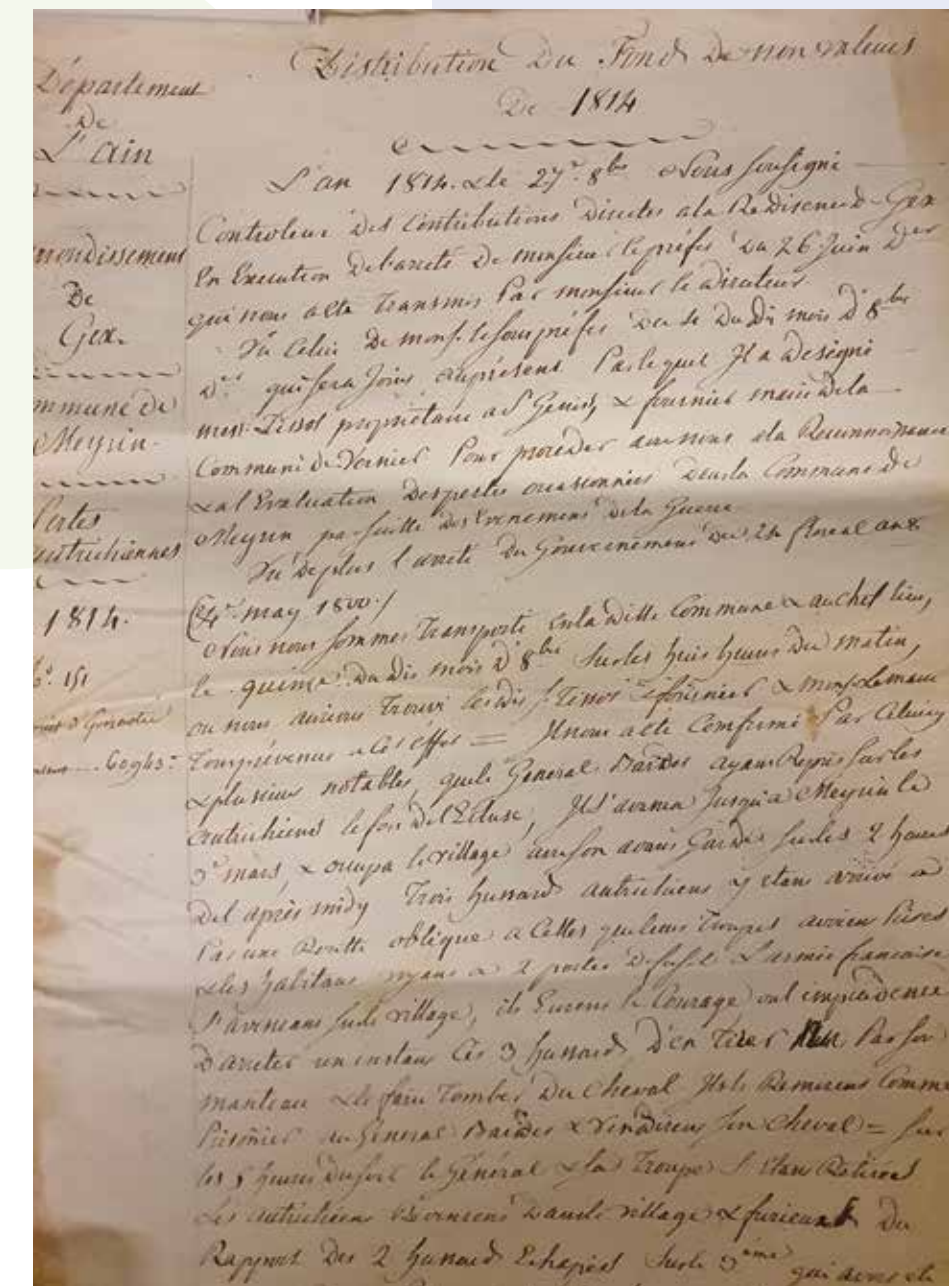 Département
De
L'ain
arrondissement
De
Gex.
mmune de
Meyrin.
Pertes
autrichiennes
1814.
N.° 151
60943
Distribution Du Fond De non valeurs
De 1814
L'an 1814. & le 27.e 8bre Nous soussigné
Controleur Des Contributions Directes a la Residence de Gex
En Execution de l'areté De monsieur le préfet du 26 Juin Der
qui nous a été Transmis Par monsieur le directeur
Vu Celui De mons. le souspréfet du Du Dit mois D'8bre
Dr qui sera Joint au présent Par lequel Il a Designé
mess. Tissot propriétaire a St Genis, & fournier maire de la
Commune de Vernier Pour proceder avec nous a la Reconnoissance
& a l'Evaluation Des pertes occasionnées Dans la Commune de
Meyrin par suitte des Evenemens De la Guerre
Vu De plus l'areté Du Gouvernement Du 24 floreal an 8
(may 1800.)
Nous nous sommes Transporté En la ditte Commune & au chef lieu,
le quinze Du dit mois D'8bre sur les huit heures Du matin,
ou nous aurions Trouvé les dits Srs Tissot & fournier & mons. Le maire
Tous prévenus a Cet effet = Il nous a été Confirmé Par Celuicy
& plusieurs notables, que le General Bardet ayant Repris sur les
autrichiens le fort de l'Ecluse, Il s'avança Jusqu'a Meyrin le
mars & occupa le village avec son avant Garde sur les 2 heures
Del après midy Trois hussards autrichiens y étant arrivé
Par une Routte oblique a Celles que leurs Troupes avoient Prises
& les habitans voyant a 2 portées De fusil L'armée francaise
s'avancant sur le village, ils Eurent le Courage ou l'imprudence
D'areter un instant Ces 3 hussards D'en Tirer un Par son
manteau & le faire Tomber Du Cheval Ils le Remirent Comme
Prisonier au General Bardet & Vendirent son Cheval = sur
les 5 heures Du soir le Général & sa Troupe s'étant Retirés
Les autrichiens Revinrent Dans le village & furieux Du
Rapport Des 2 hussards Echapés sur le 3ème qui avoit été